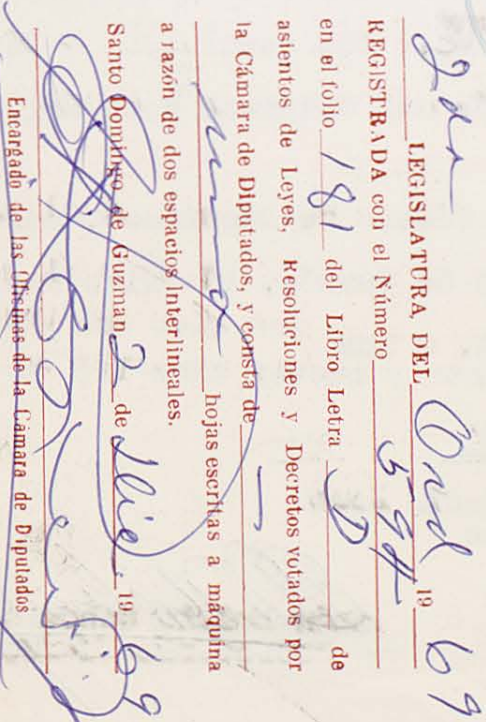 2da LEGISLATURA DEL Ord 19 69
REGISTRADA con el Número 594
en el folio 181 del Libro Letra D de
asientos de Leyes, Resoluciones y Decretos votados por
la Cámara de Diputados, y consta de
hojas escritas a máquina
a razón de dos espacios Interlineales.
Santo Domingo de Guzman 2 de Dbic. 19 69
Encargado de las Oficinas de la Cámara de Diputados